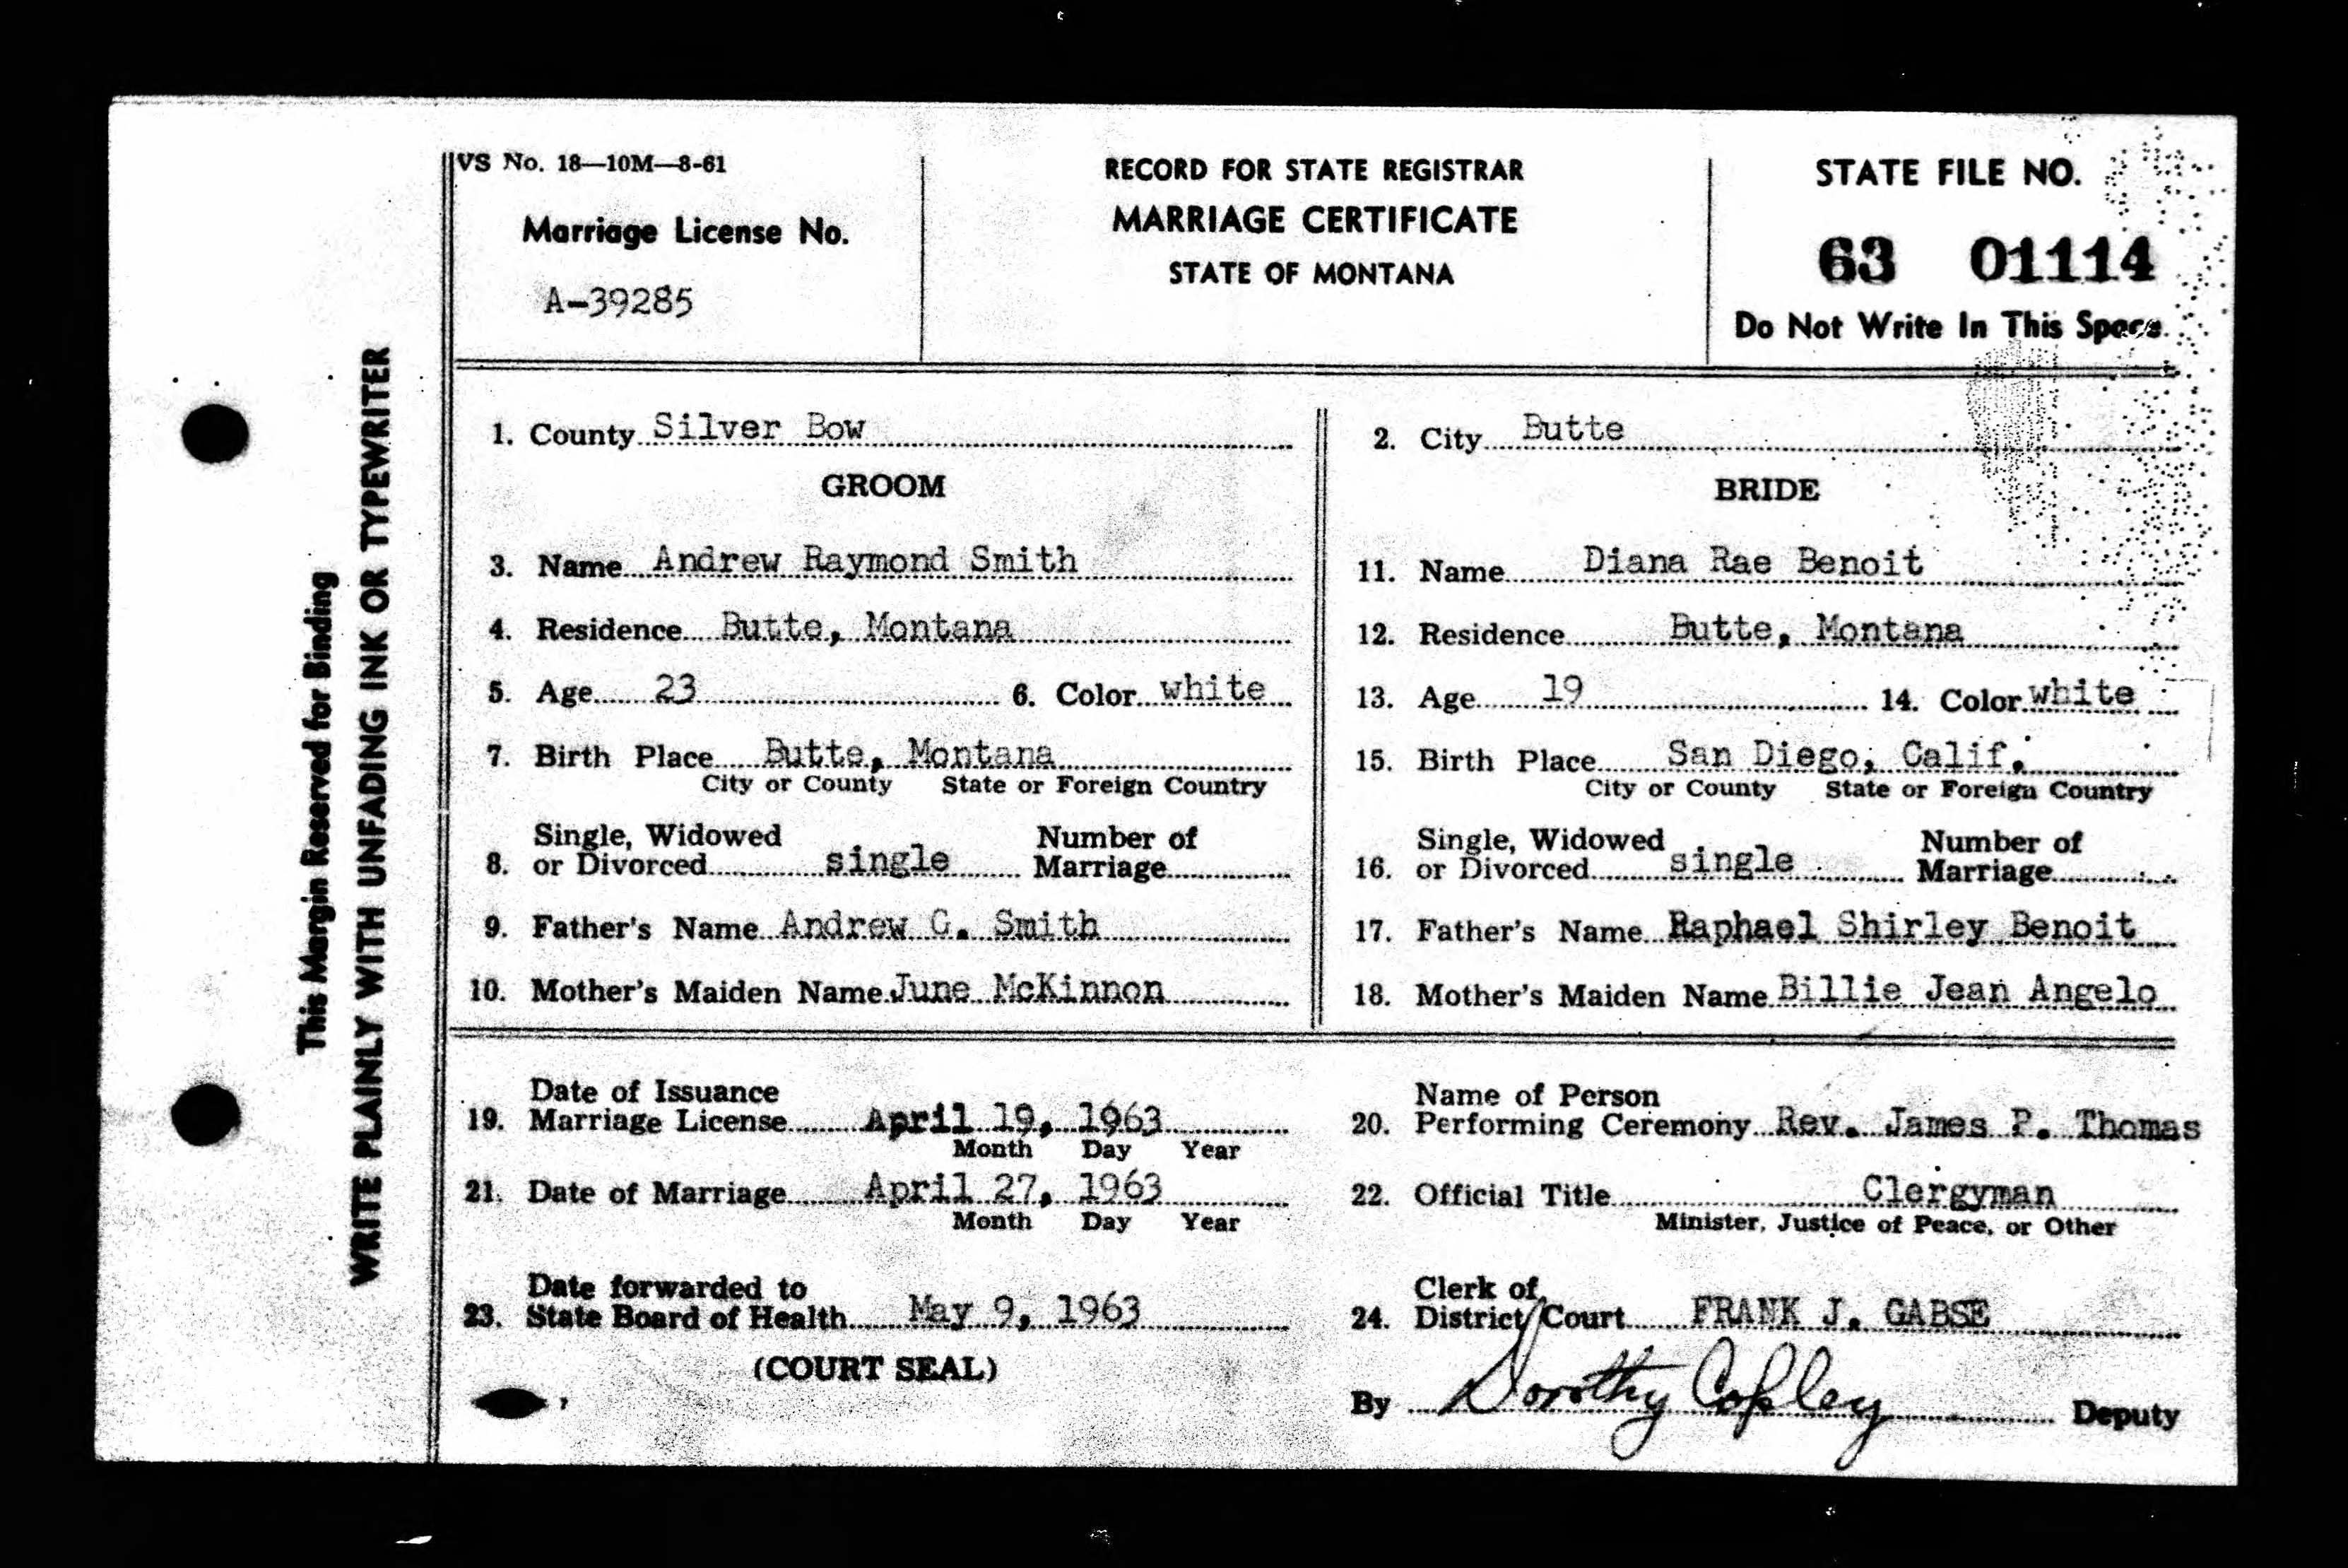 VS No. 18—10M—8-61
Marriage License No.
A-39285
RECORD FOR STATE REGISTRAR
MARRIAGE CERTIFICATE
STATE OF MONTANA
STATE FILE NO.
63 01114
Do Not Write In This Space
This Margin Reserved for Binding
WRITE PLAINLY WITH UNFADING INK OR TYPEWRITER
1. County Silver Bow
2. City Butte
GROOM
3. Name Andrew Raymond Smith
4. Residence Butte, Montana
5. Age 23 6. Color white
7. Birth Place Butte, Montana
City or County State or Foreign Country
Single, Widowed Number of
8. or Divorced single Marriage
9. Father's Name Andrew G. Smith
10. Mother's Maiden Name June McKinnon
BRIDE
11. Name Diana Rae Benoit
12. Residence Butte, Montana
13. Age 19 14. Color white
15. Birth Place San Diego, Calif.
City or County State or Foreign Country
Single, Widowed Number of
16. or Divorced single Marriage
17. Father's Name Raphael Shirley Benoit
18. Mother's Maiden Name Billie Jean Angelo
Date of Issuance
19. Marriage License April 19, 1963
Month Day Year
Name of Person
20. Performing Ceremony Rev. James P. Thomas
21. Date of Marriage April 27, 1963
Month Day Year
22. Official Title Clergyman
Minister, Justice of Peace, or Other
Date forwarded to
23. State Board of Health May 9, 1963
(COURT SEAL)
Clerk of
24. District Court FRANK J. GABSE
By Dorothy Copley Deputy